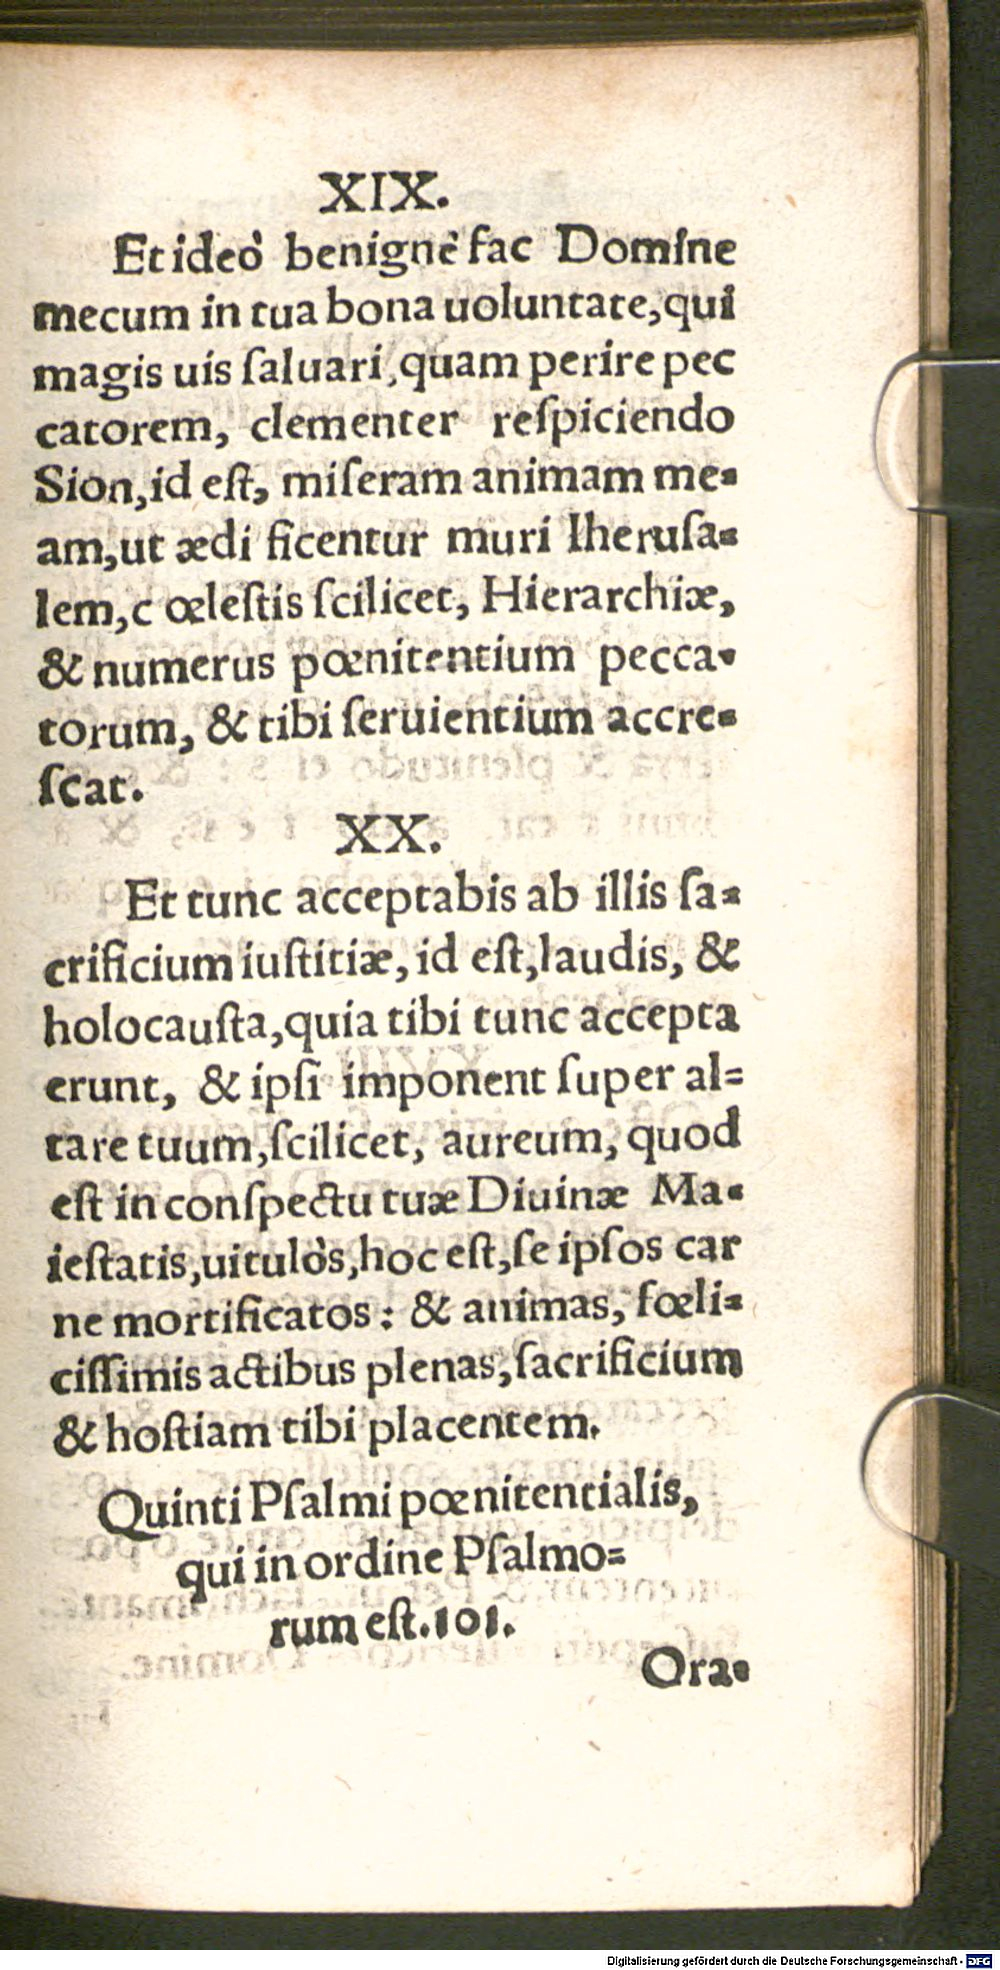 XIX.
Et ideò benignè fac Domine
mecum in tua bona uoluntate, qui
magis uis ſaluari, quam perire pec
catorem, clementer reſpiciendo
Sion, id eſt, miſeram animam me-
am, ut ædi ficentur muri Iheruſa-
lem, c œleſtis ſcilicet, Hierarchiæ,
& numerus pœnitentium pecca-
torum, & tibi ſeruientium accre-
ſcat.
XX.
Et tunc acceptabis ab illis ſa-
crificium iuſtitiæ, id eſt, laudis, &
holocauſta, quia tibi tunc accepta
erunt, & ipſi imponent ſuper al=
tare tuum, ſcilicet, aureum, quod
eſt in conſpectu tuæ Diuinæ Ma-
ieſtatis, uitulòs, hoc eſt, ſe ipſos car
ne mortificatos: & animas, fœli-
ciſſimis actibus plenas, ſacrificium
& hoſtiam tibi placentem.
Quinti Pſalmi pœnitentialis,
qui in ordine Pſalmo=
rum eſt. 101.
Ora-
Digitalisierung gefördert durch die Deutsche Forschungsgemeinschaft - DFG